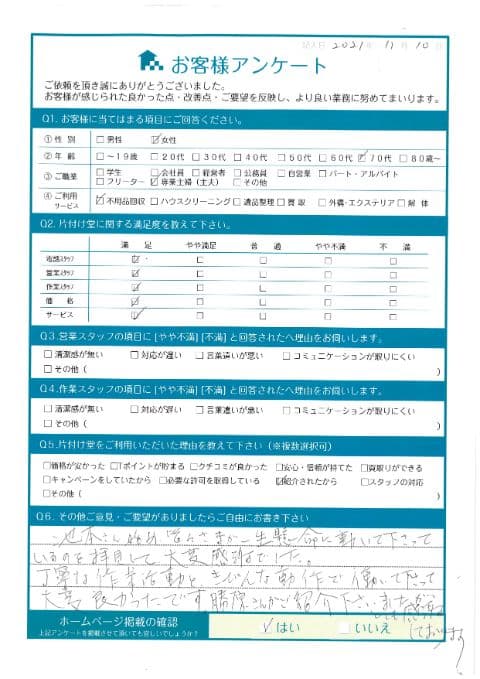 記入日 2021年 11月 10日
お客様アンケート
ご依頼を頂き誠にありがとうございました。
お客様が感じられた良かった点・改善点・ご要望を反映し、より良い業務に努めてまいります。
Q1. お客様に当てはまる項目にご回答ください。
① 性 別 □男性 ☑女性
② 年 齢 □～19歳 □20代 □30代 □40代 □50代 □60代 ☑70代 □80歳～
③ ご職業 □学生 □会社員 □経営者 □公務員 □自営業 □パート・アルバイト
□フリーター ☑専業主婦（主夫） □その他
④ ご利用サービス ☑不用品回収 □ハウスクリーニング □遺品整理 □買取 □外構・エクステリア □解体
Q2. 片付け堂に関する満足度を教えて下さい。
満足 やや満足 普通 やや不満 不満
電話スタッフ ☑ □ □ □ □
営業スタッフ ☑ □ □ □ □
作業スタッフ ☑ □ □ □ □
価格 ☑ □ □ □ □
サービス ☑ □ □ □ □
Q3.営業スタッフの項目に [やや不満] [不満] と回答された方へ理由をお伺いします。
□清潔感が無い □対応が遅い □言葉遣いが悪い □コミュニケーションが取りにくい
□その他（ ）
Q4.作業スタッフの項目に [やや不満] [不満] と回答された方へ理由をお伺いします。
□清潔感が無い □対応が遅い □言葉遣いが悪い □コミュニケーションが取りにくい
□その他（ ）
Q5.片付け堂をご利用いただいた理由を教えて下さい（※複数選択可）
□価格が安かった □Tポイントが貯まる □クチコミが良かった □安心・信頼が持てた □買取りができる
□キャンペーンをしていたから □必要な許可を取得している ☑紹介されたから □スタッフの対応
□その他（ ）
Q6. その他ご意見・ご要望がありましたらご自由にお書き下さい
池本さん始め皆さまが一生懸命に動いて下さって
いるのを拝見して大変感謝でした。
丁寧な作業活動と、きびんな動作で働いて下って
大変良かったです。勝原さんがご紹介下さいました
しております
ホームページ掲載の確認
上記アンケートを掲載させて頂いても宜しいでしょうか？
☑はい □いいえ